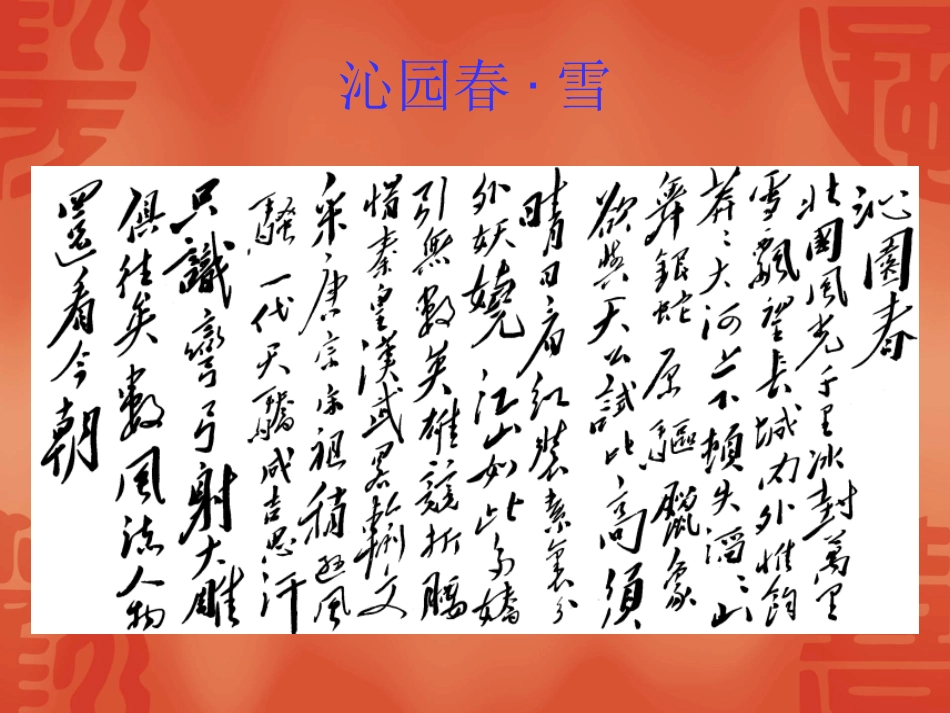 沁园春·雪
沁園春
北國風光千里冰封萬里
雪飄望長城内外惟餘
莽莽大河上下頓失滔滔山
舞銀蛇原驅臘象
欲與天公試比高須
晴日看紅裝素裹分
外妖嬈江山如此多嬌
引無數英雄競折腰
惜秦皇漢武略輸文
采唐宗宋祖稍遜風
騷一代天驕成吉思汗
只識彎弓射大雕
俱往矣數風流人物
還看今朝